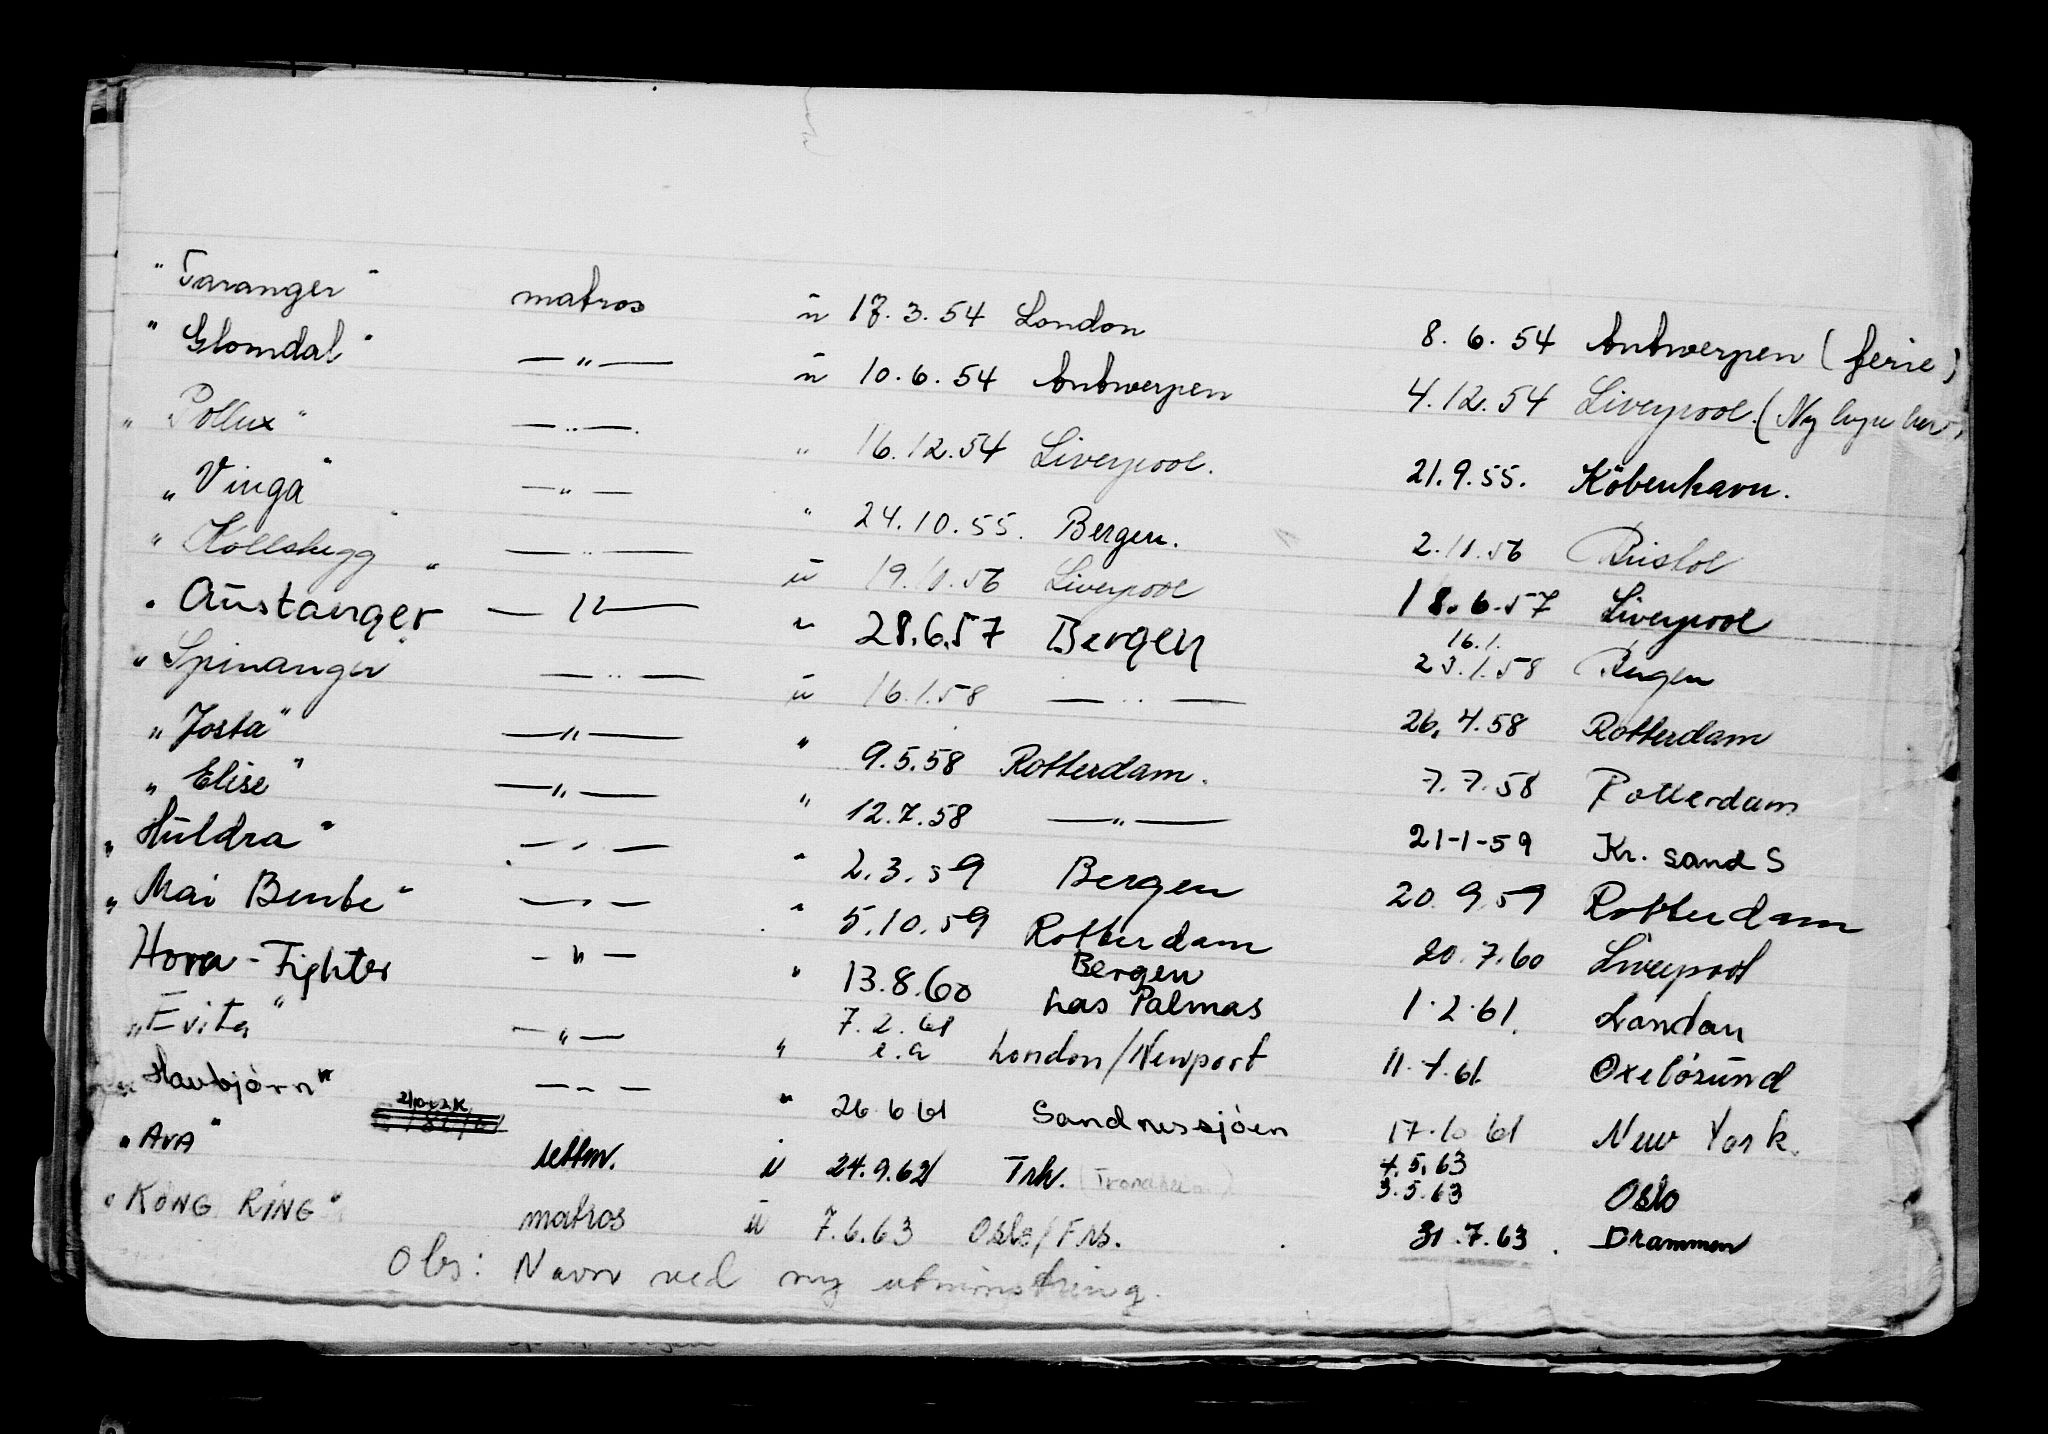 "Taranger" matros ũ 17.3.54 London 8.6.54 Antwerpen (ferie)
"Glomdal" —"— ũ 10.6.54 Antwerpen 4.12.54 Liverpool. (Ny hyre her)
"Pollux" —"— " 16.12.54 Liverpool. 21.9.55. Köbenhavn.
"Vinga" —"— " 24.10.55. Bergen. 2.11.56 Bristol
"Kollskegg" —"— ũ 19.11.56 Liverpool 18.6.57 Liverpool
"Austanger" —"— " 28.6.57 Bergen 16.1. 23.1.58 Bergen
"Spinanger" —"— ũ 16.1.58 —"— 26.4.58 Rotterdam
"Josta" —"— " 9.5.58 Rotterdam. 7.7.58 Rotterdam
"Elise" —"— " 12.7.58 —"— 21-1-59 Kr. sand S
"Huldra" —"— " 2.3.59 Bergen 20.9.59 Rotterdam
"Mai Bente" —"— " 5.10.59 Rotterdam 20.7.60 Liverpool
Hora-Fighter —"— " 13.8.60 Bergen Las Palmas 1.2.61. London
"Evita" —"— " 7.2.61 e.a London/Newport 11.4.61. Oxelösund
"Havbjørn" —"— " 26.6.61 Sandnessjøen 17.10.61 New York.
"AVA" lettm. ũ 24.9.62 Trh. (Trondheim) 4.5.63 3.5.63 Oslo
"KONG RING" matros ũ 7.6.63 Oslo/Frs. 31.7.63. Drammen
Obs: Navn ved ny utmønstring.